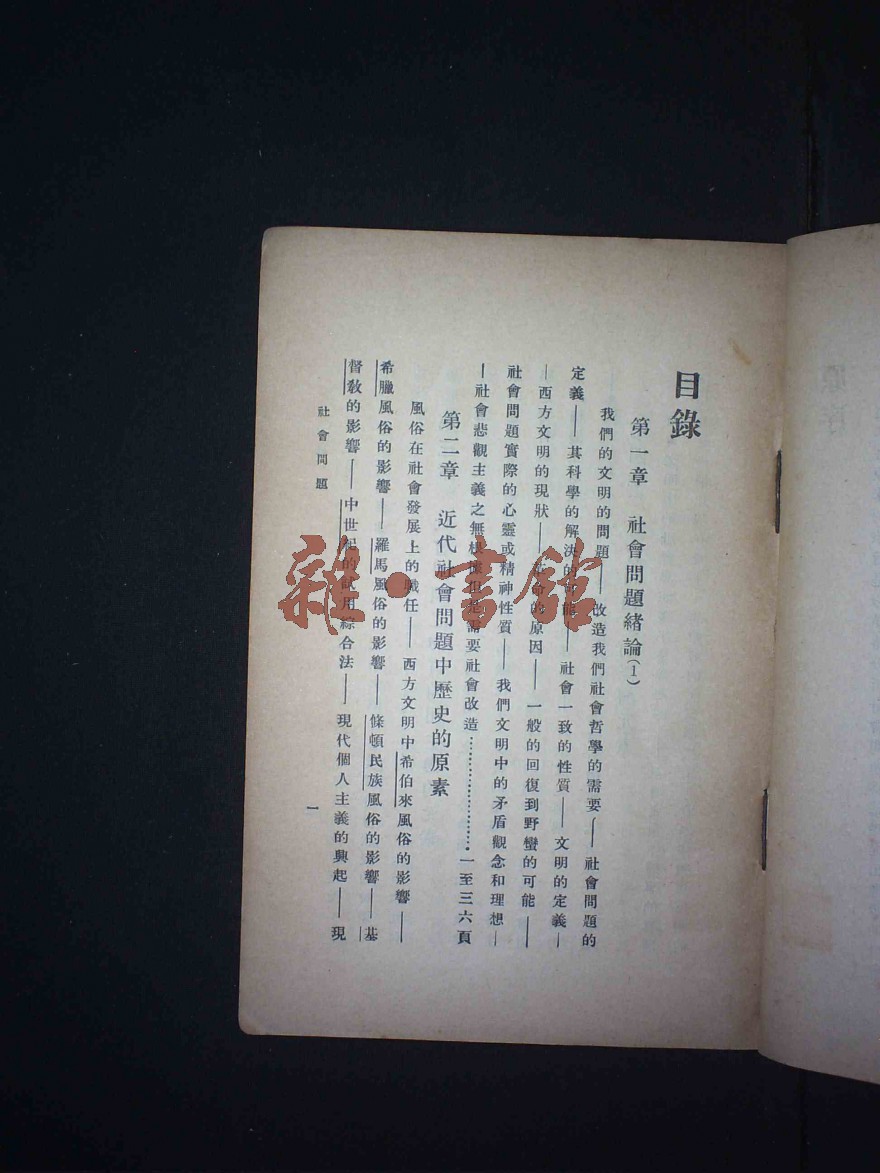 目錄
第一章 社會問題緒論(1)
我們的文明的問題——改造我們社會哲學的需要——社會問題的
定義——其科學的解決的可能——社會一致的性質——文明的定義—
—西方文明的現狀——革命的原因——一般的回復到野蠻的可能——
社會問題實際的心靈或精神性質——我們文明中的矛盾觀念和理想—
—社會悲觀主義之無根據但是需要社會改造……………………一至三六頁
第二章 近代社會問題中歷史的原素
風俗在社會發展上的職任——西方文明中希伯來風俗的影響——
希臘風俗的影響——羅馬風俗的影響——條頓民族風俗的影響——基
督教的影響——中世紀的試用綜合法——現代個人主義的興起——現
社會問題
一
雜·書館